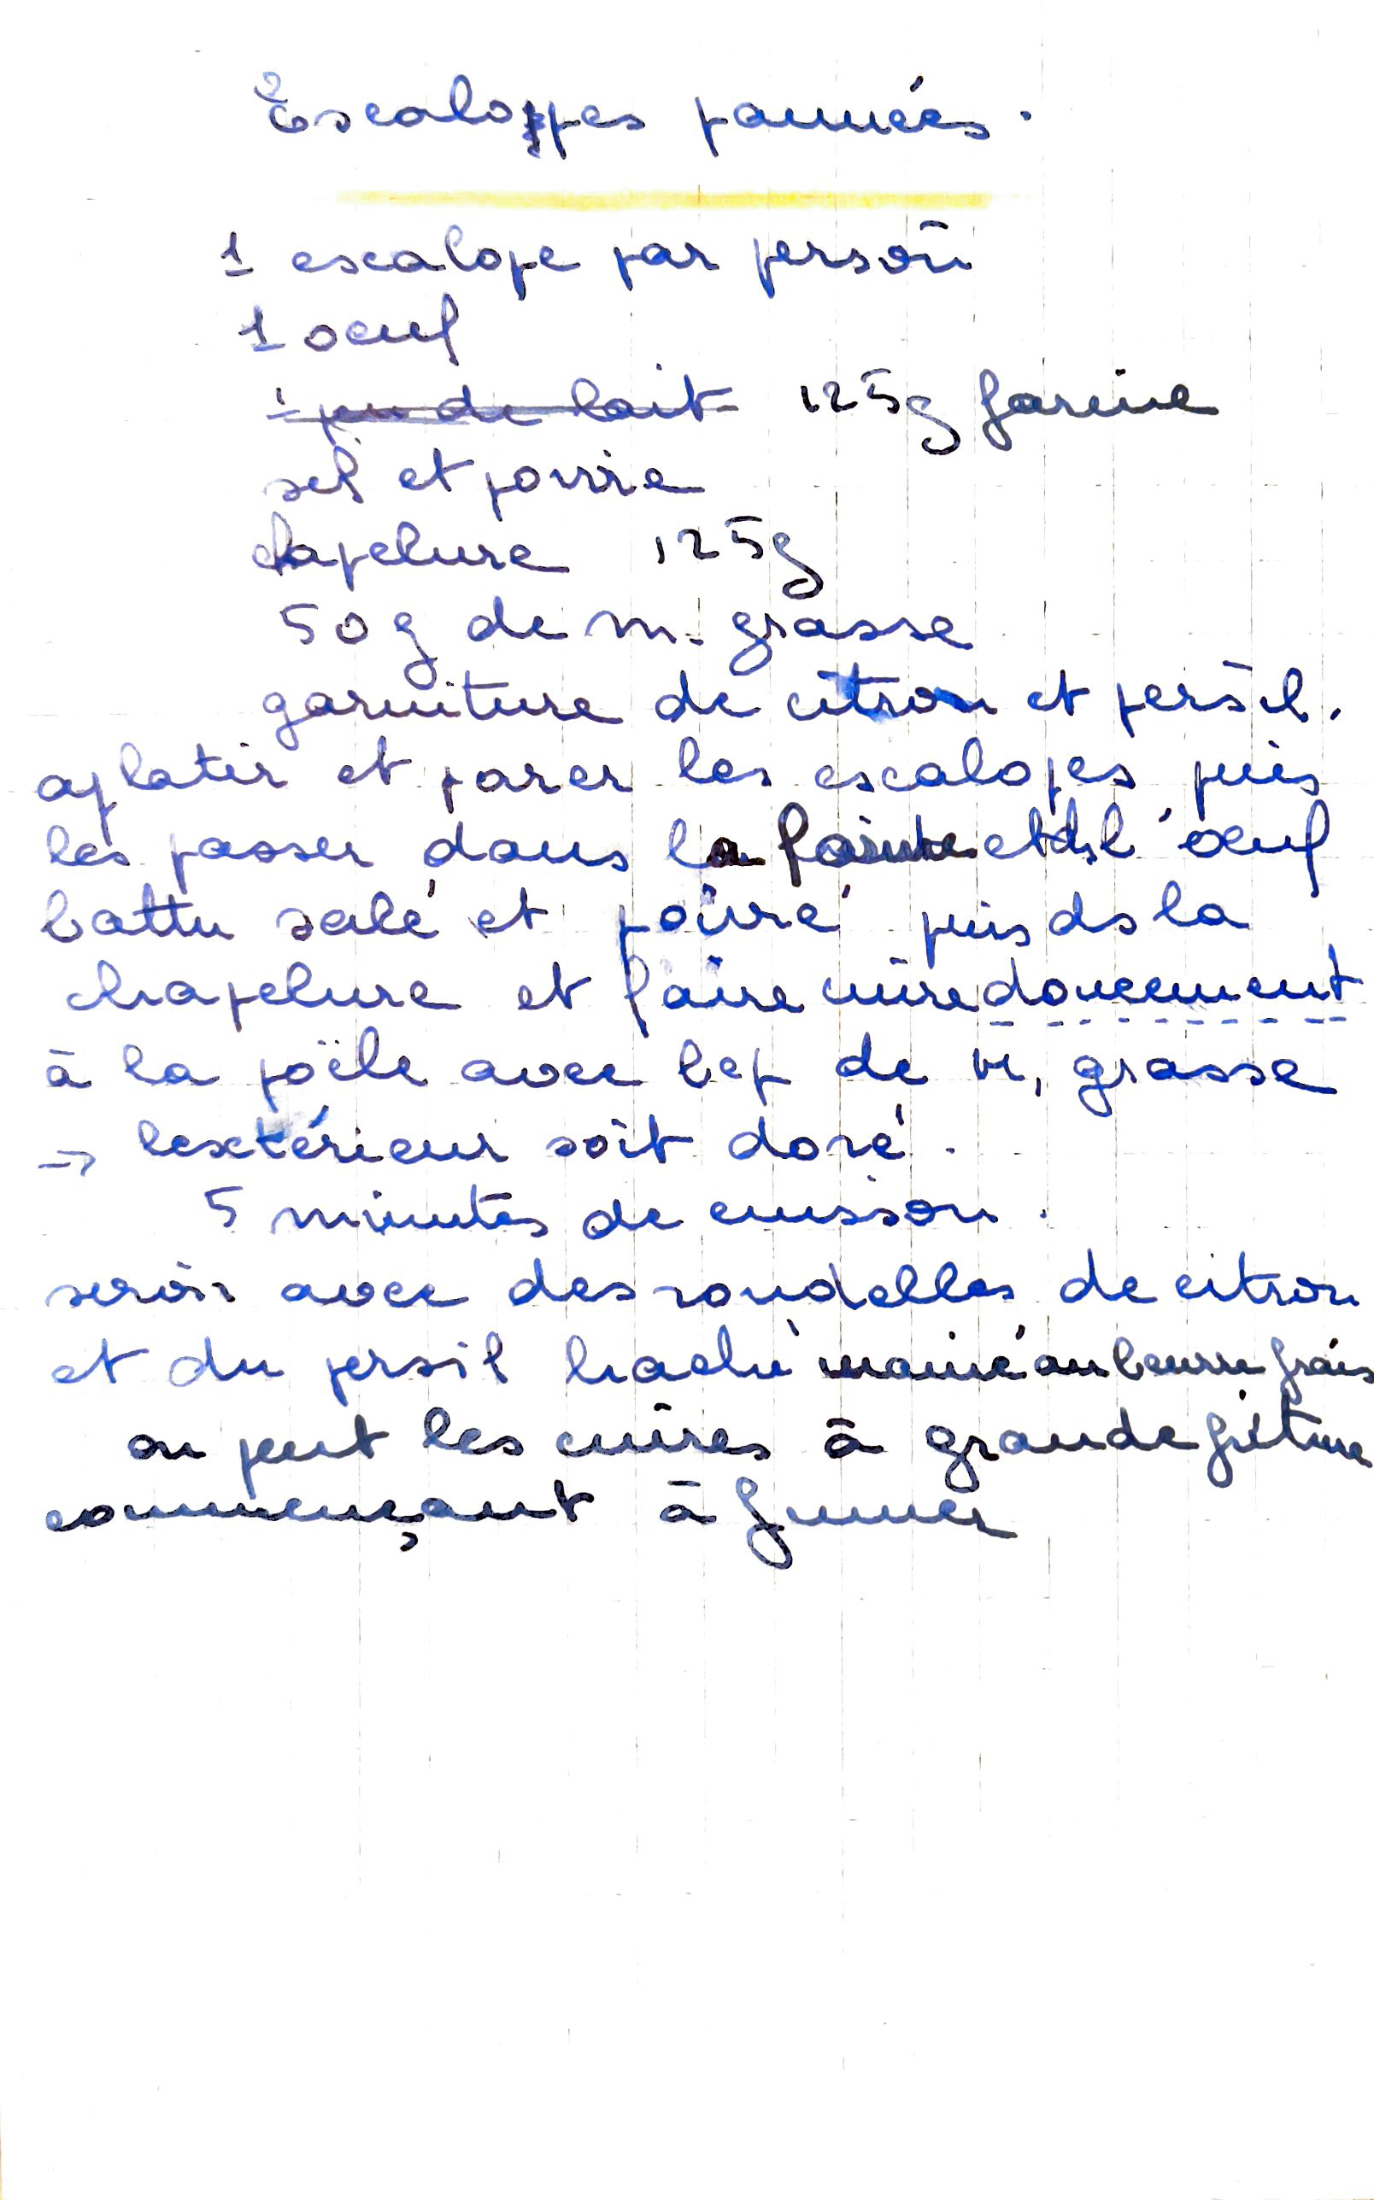 Escaloppes pannées.
1 escalope par person
1 oeuf
1 peu de lait 125g farine
sel et poivre
chapelure 125g
50g de m. grasse
garniture de citron et persil.
aplatir et parer les escalopes puis
les passer dans la farine et ds l'oeuf
battu salé et poivré puis ds la
chapelure et faire cuire doucement
à la poële avec de m. grasse
→ lextérieur soit doré.
5 minutes de cuisson.
servir avec des rondelles de citron
et du persil haché manié au beurre frais
on peut les cuires à grande friture
commençant à fumer